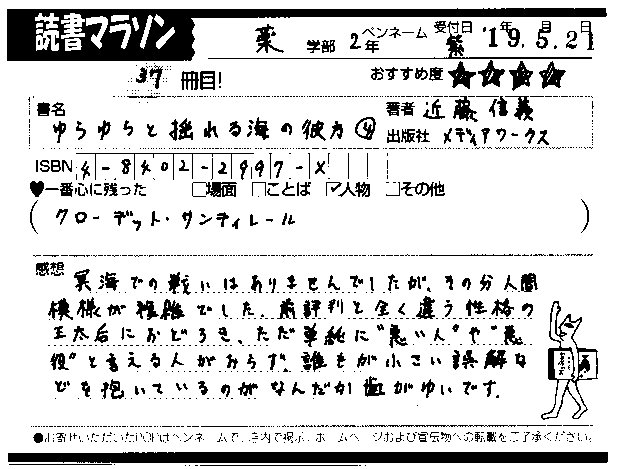 読書マラソン
薬 学部 2年 ペンネーム 紫 受付日 '19年.5月.21日
37 冊目!
おすすめ度 ★★★★
書名
ゆらゆらと揺れる海の彼方 ④
著者 近藤信義
出版社 メディアワークス
ISBN 4-8402-2997-X
♥一番心に残った □場面 □ことば ☑人物 □その他
(クローデット・サンティレール)
感想
冥海での戦いはありませんでしたが、その分人間
模様が複雑でした。前評判と全く違う性格の
王太后におどろき、ただ単純に"悪い人"や"悪
役"と言える人がおらず、誰もが小さい誤解な
どを抱いているのがなんだか歯がゆいです。
●お寄せいただいたPOPはペンネームで、店内で掲示、ホームページおよび宣伝物への転載をご了承ください。